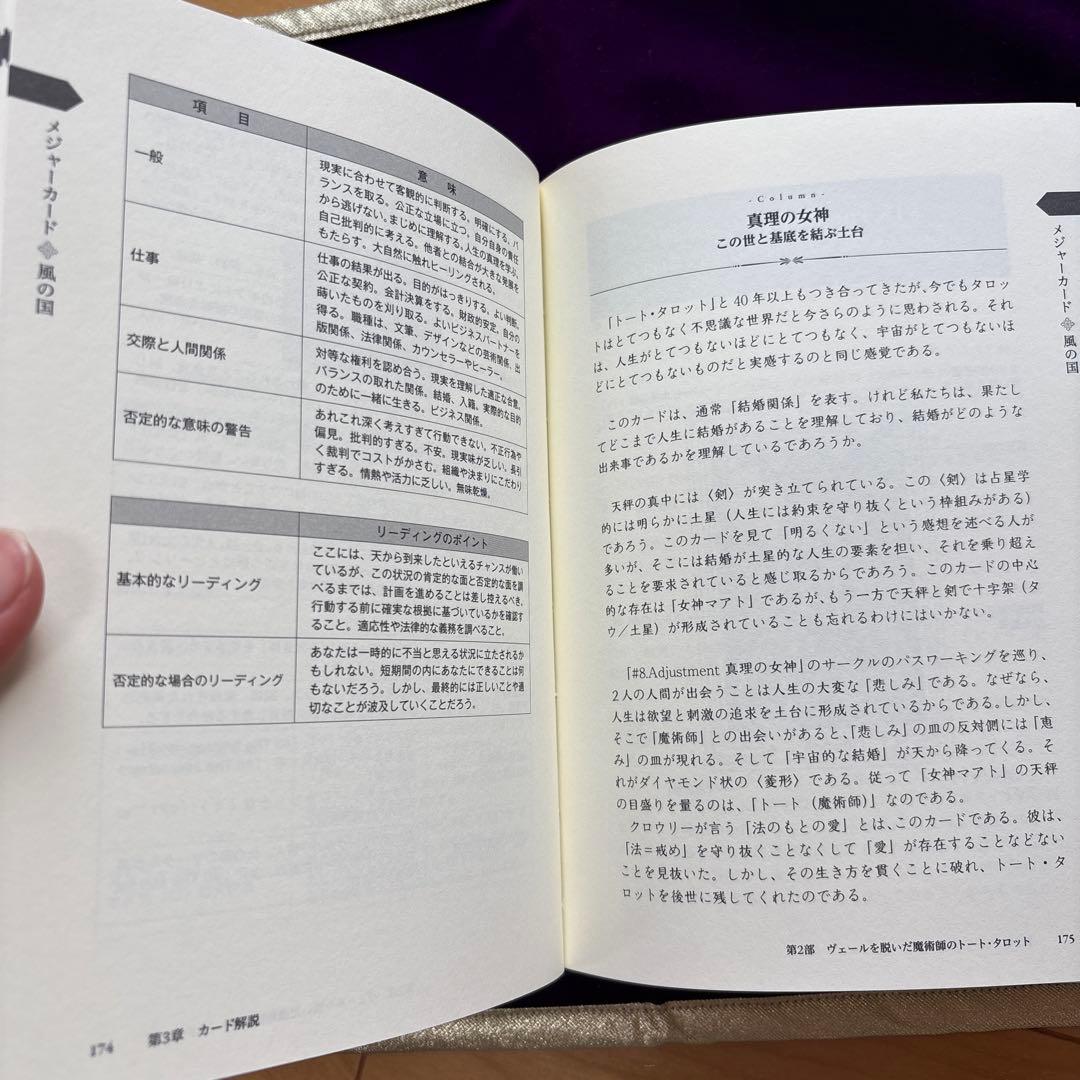 メジャーカード ❖ 風の国
項　目
意　味
一般
現実に合わせて客観的に判断する。明確にする。バ
ランスを取る。公正な立場に立つ。自分自身の責任
から逃げない。まじめに理解する。人生の真理を学ぶ。
自己批判的に考える。他者との結合が大きな発展を
もたらす。大自然に触れヒーリングされる。
仕事
仕事の結果が出る。目的がはっきりする。よい判断。
公正な契約。会計決算をする。財政的安定。自分の
蒔いたものを刈り取る。よいビジネスパートナーを
得る。職種は、文筆、デザインなどの芸術関係、出
版関係、法律関係、カウンセラーやヒーラー。
交際と人間関係
対等な権利を認め合う。現実を理解した適正な合意。
バランスの取れた関係。結婚、入籍。実際的な目的
のために一緒に生きる。ビジネス関係。
否定的な意味の警告
あれこれ深く考えすぎて行動できない。不正行為や
偏見。批判的すぎる。不安。現実味が乏しい。長引
く裁判でコストがかさむ。組織や決まりにこだわり
すぎる。情熱や活力に乏しい。無味乾燥。
リーディングのポイント
基本的なリーディング
ここには、天から到来したといえるチャンスが働い
ているが、この状況の肯定的な面と否定的な面を調
べるまでは、計画を進めることは差し控えるべき。
行動する前に確実な根拠に基づいているかを確認す
ること。適応性や法律的な義務を調べること。
否定的な場合のリーディング
あなたは一時的に不当と思える状況に立たされるか
もしれない。短期間の内にあなたにできることは何
もないだろう。しかし、最終的には正しいことや適
切なことが波及していくことだろう。
174　第3章　カード解説
-Column-
真理の女神
この世と基底を結ぶ土台
「トート・タロット」と40年以上もつき合ってきたが、今でもタロッ
トはとてつもなく不思議な世界だと今さらのように思わされる。それ
は、人生がとてつもないほどにとてつもなく、宇宙がとてつもないほ
どにとてつもないものだと実感するのと同じ感覚である。
このカードは、通常「結婚関係」を表す。けれど私たちは、果たし
てどこまで人生に結婚があることを理解しており、結婚がどのような
出来事であるかを理解しているであろうか。
天秤の真中には〈剣〉が突き立てられている。この〈剣〉は占星学
的には明らかに土星（人生には約束を守り抜くという枠組みがある）
であろう。このカードを見て「明るくない」という感想を述べる人が
多いが、そこには結婚が土星的な人生の要素を担い、それを乗り超え
ることを要求されていると感じ取るからであろう。このカードの中心
的な存在は「女神マアト」であるが、もう一方で天秤と剣で十字架（タ
ウ／土星）が形成されていることも忘れるわけにはいかない。
「#8.Adjustment 真理の女神」のサークルのパスワーキングを巡り、
2人の人間が出会うことは人生の大変な「悲しみ」である。なぜなら、
人生は欲望と刺激の追求を土台に形成されているからである。しかし、
そこで「魔術師」との出会いがあると、「悲しみ」の皿の反対側には「恵
み」の皿が現れる。そして「宇宙的な結婚」が天から降ってくる。そ
れがダイヤモンド状の〈菱形〉である。従って「女神マアト」の天秤
の目盛りを量るのは、「トート（魔術師）」なのである。
クロウリーが言う「法のもとの愛」とは、このカードである。彼は、
「法＝戒め」を守り抜くことなくして「愛」が存在することなどない
ことを見抜いた。しかし、その生き方を貫くことに破れ、トート・タ
ロットを後世に残してくれたのである。
メジャーカード ❖ 風の国
第2部　ヴェールを脱いだ魔術師のトート・タロット　175